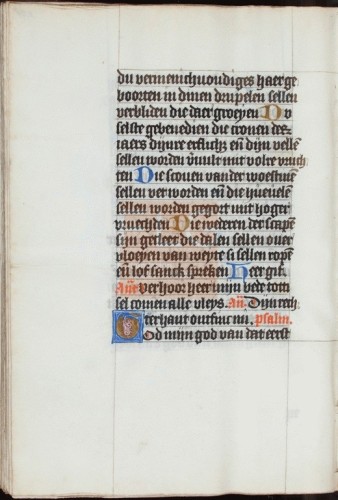 du vermenichuondiges haer ge
boorten in dinen drupelen sellen
verbliden die daer groeyen Du
selste gebenedien die cronen des
iaers dijnre en̄ dijn velle
sellen worden v̄uult mit volre vruch
ten Die scouen van der woestine̅
sellen vet worden en̄ die huevele̅
sellen worden gegort mit hoger
vruechden Die wederen der scape̅
sijn gecleet die dalen sellen ouer
vloeyen van weyte si sellen ropen
en̄ lof sanck spreken Heer gif.
An̄ verhoor heer mijn bede tot ti
sel comen alle vleys. An̄. Dijn rech
terhant ontfinc mi. psalm.
God mijn god van dat eerst